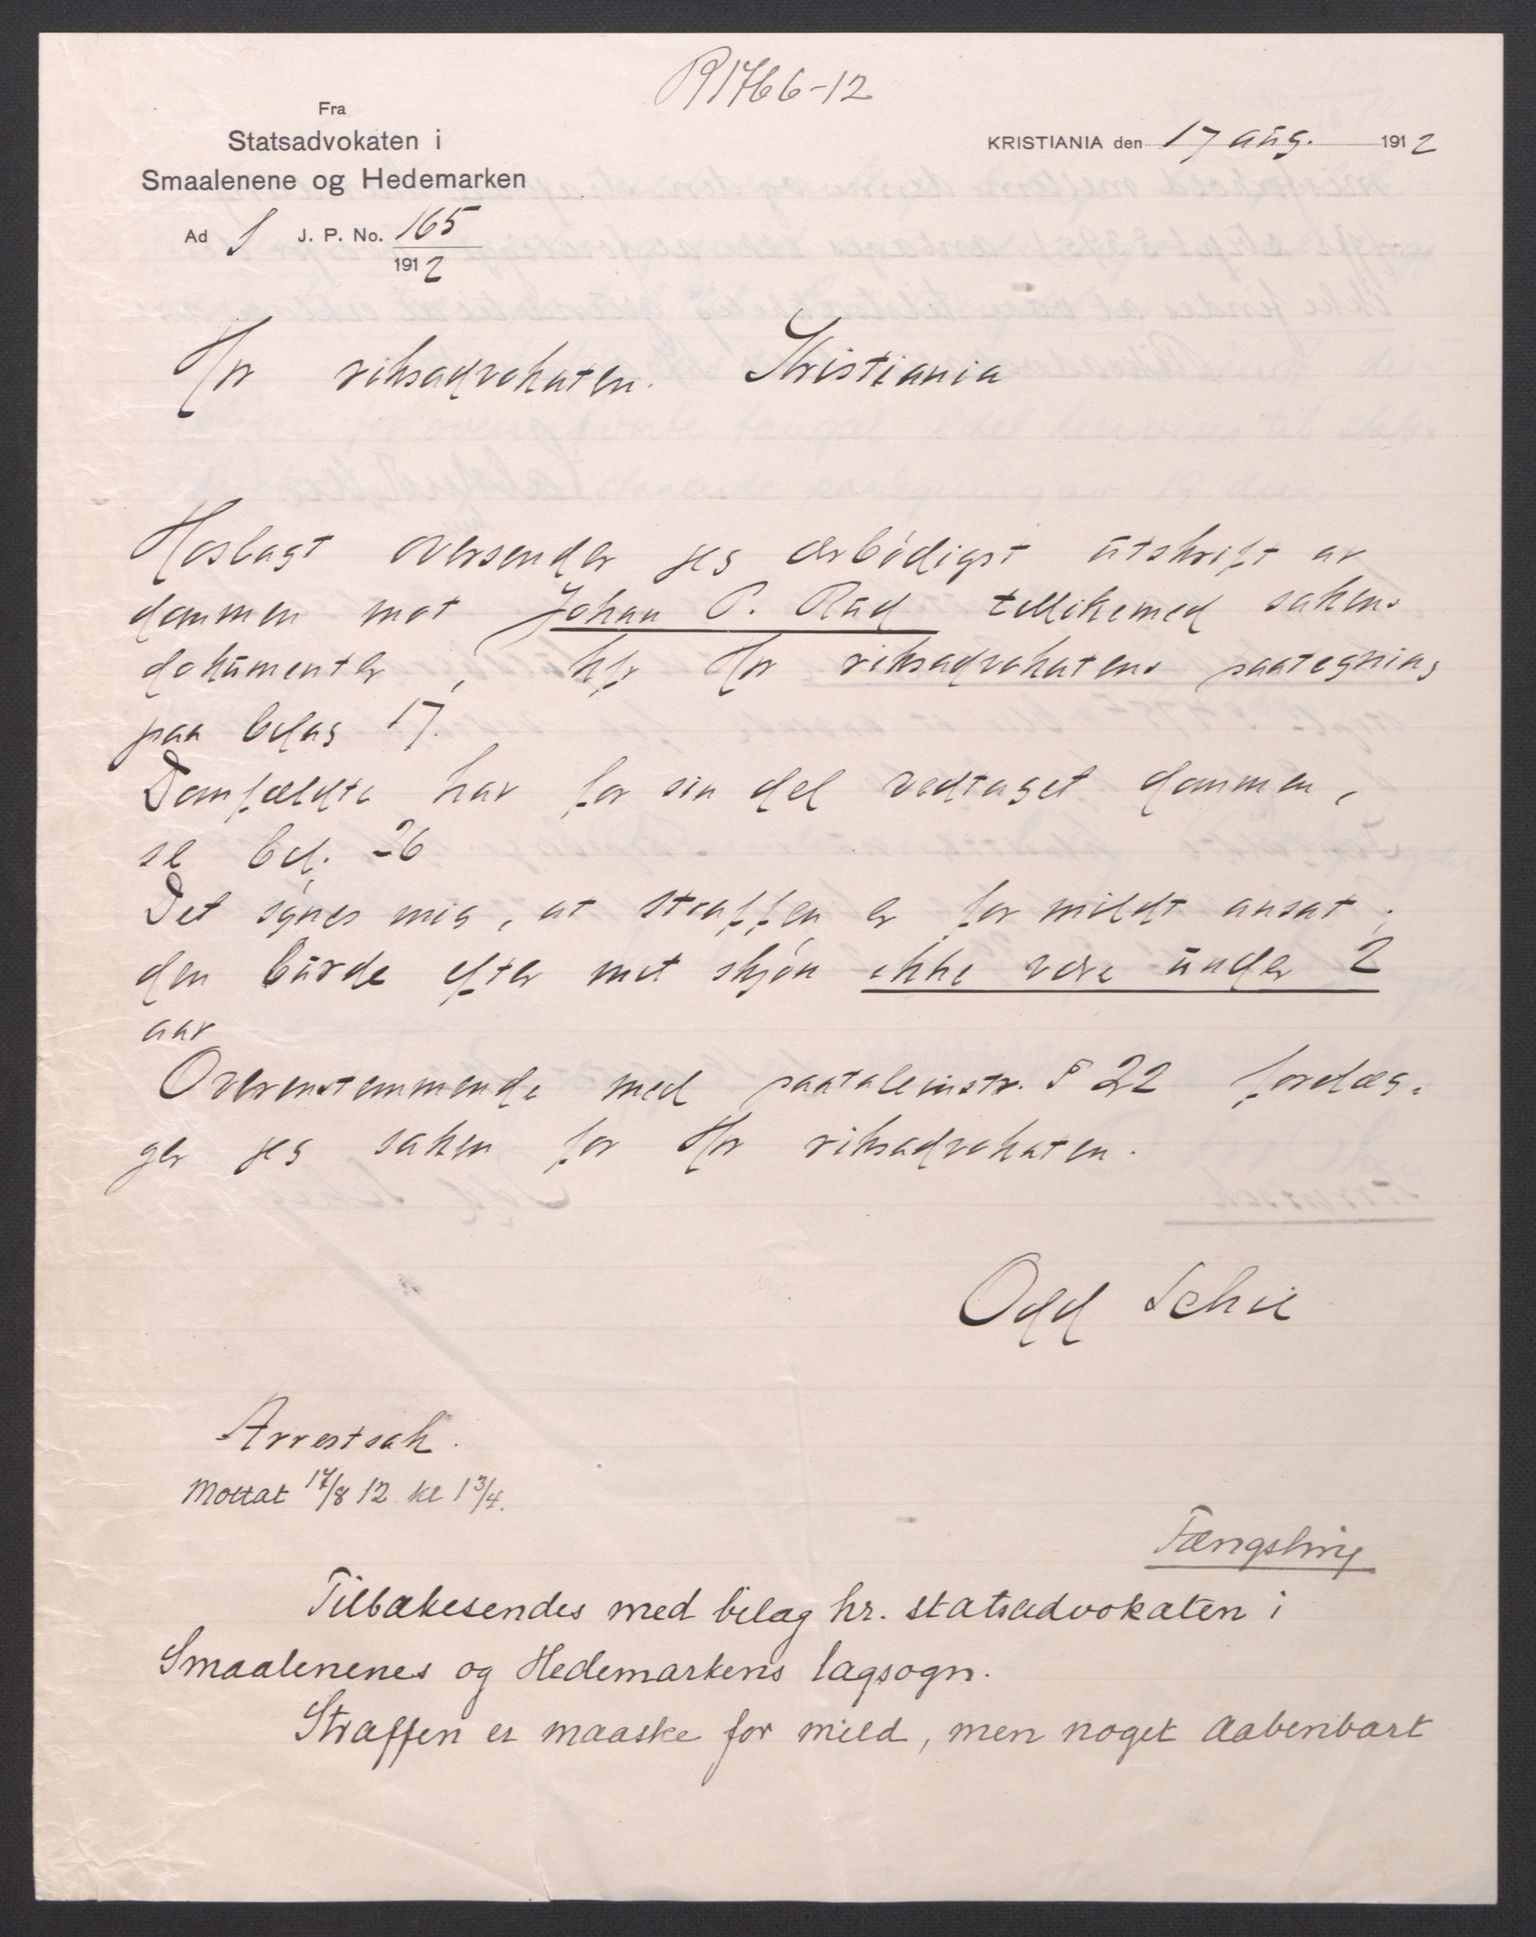 R1766-12
Fra
Statsadvokaten i
Smaalenene og Hedemarken
Ad S J. P. No. 165
1912
KRISTIANIA den 17 aug. 1912
Hr riksadvokaten. Kristiania
Hoslagt oversender jeg ærbødigst utskrift av
dommen mot Johan P. Rud tillikemed sakens
dokumenter, kfr Hr riksadvokatens paategning
paa bilag 17.
Domfældte har for sin del vedtaget dommen,
se bil. 26
Det synes mig, at straffen er for mildt ansat;
den burde efter mit skjøn ikke være under 2
aar
Overenstemmende med paataleinstr. § 22 forelæg-
ger jeg saken for Hr riksadvokaten.
Odd Schie
Arrestsak.
Mottat 17/8 12 kl 1 3/4.
Fængsling
Tilbakesendes med bilag hr. statsadvokaten i
Smaalenenes og Hedemarkens lagsogn.
Straffen er maaske for mild, men noget aabenbart